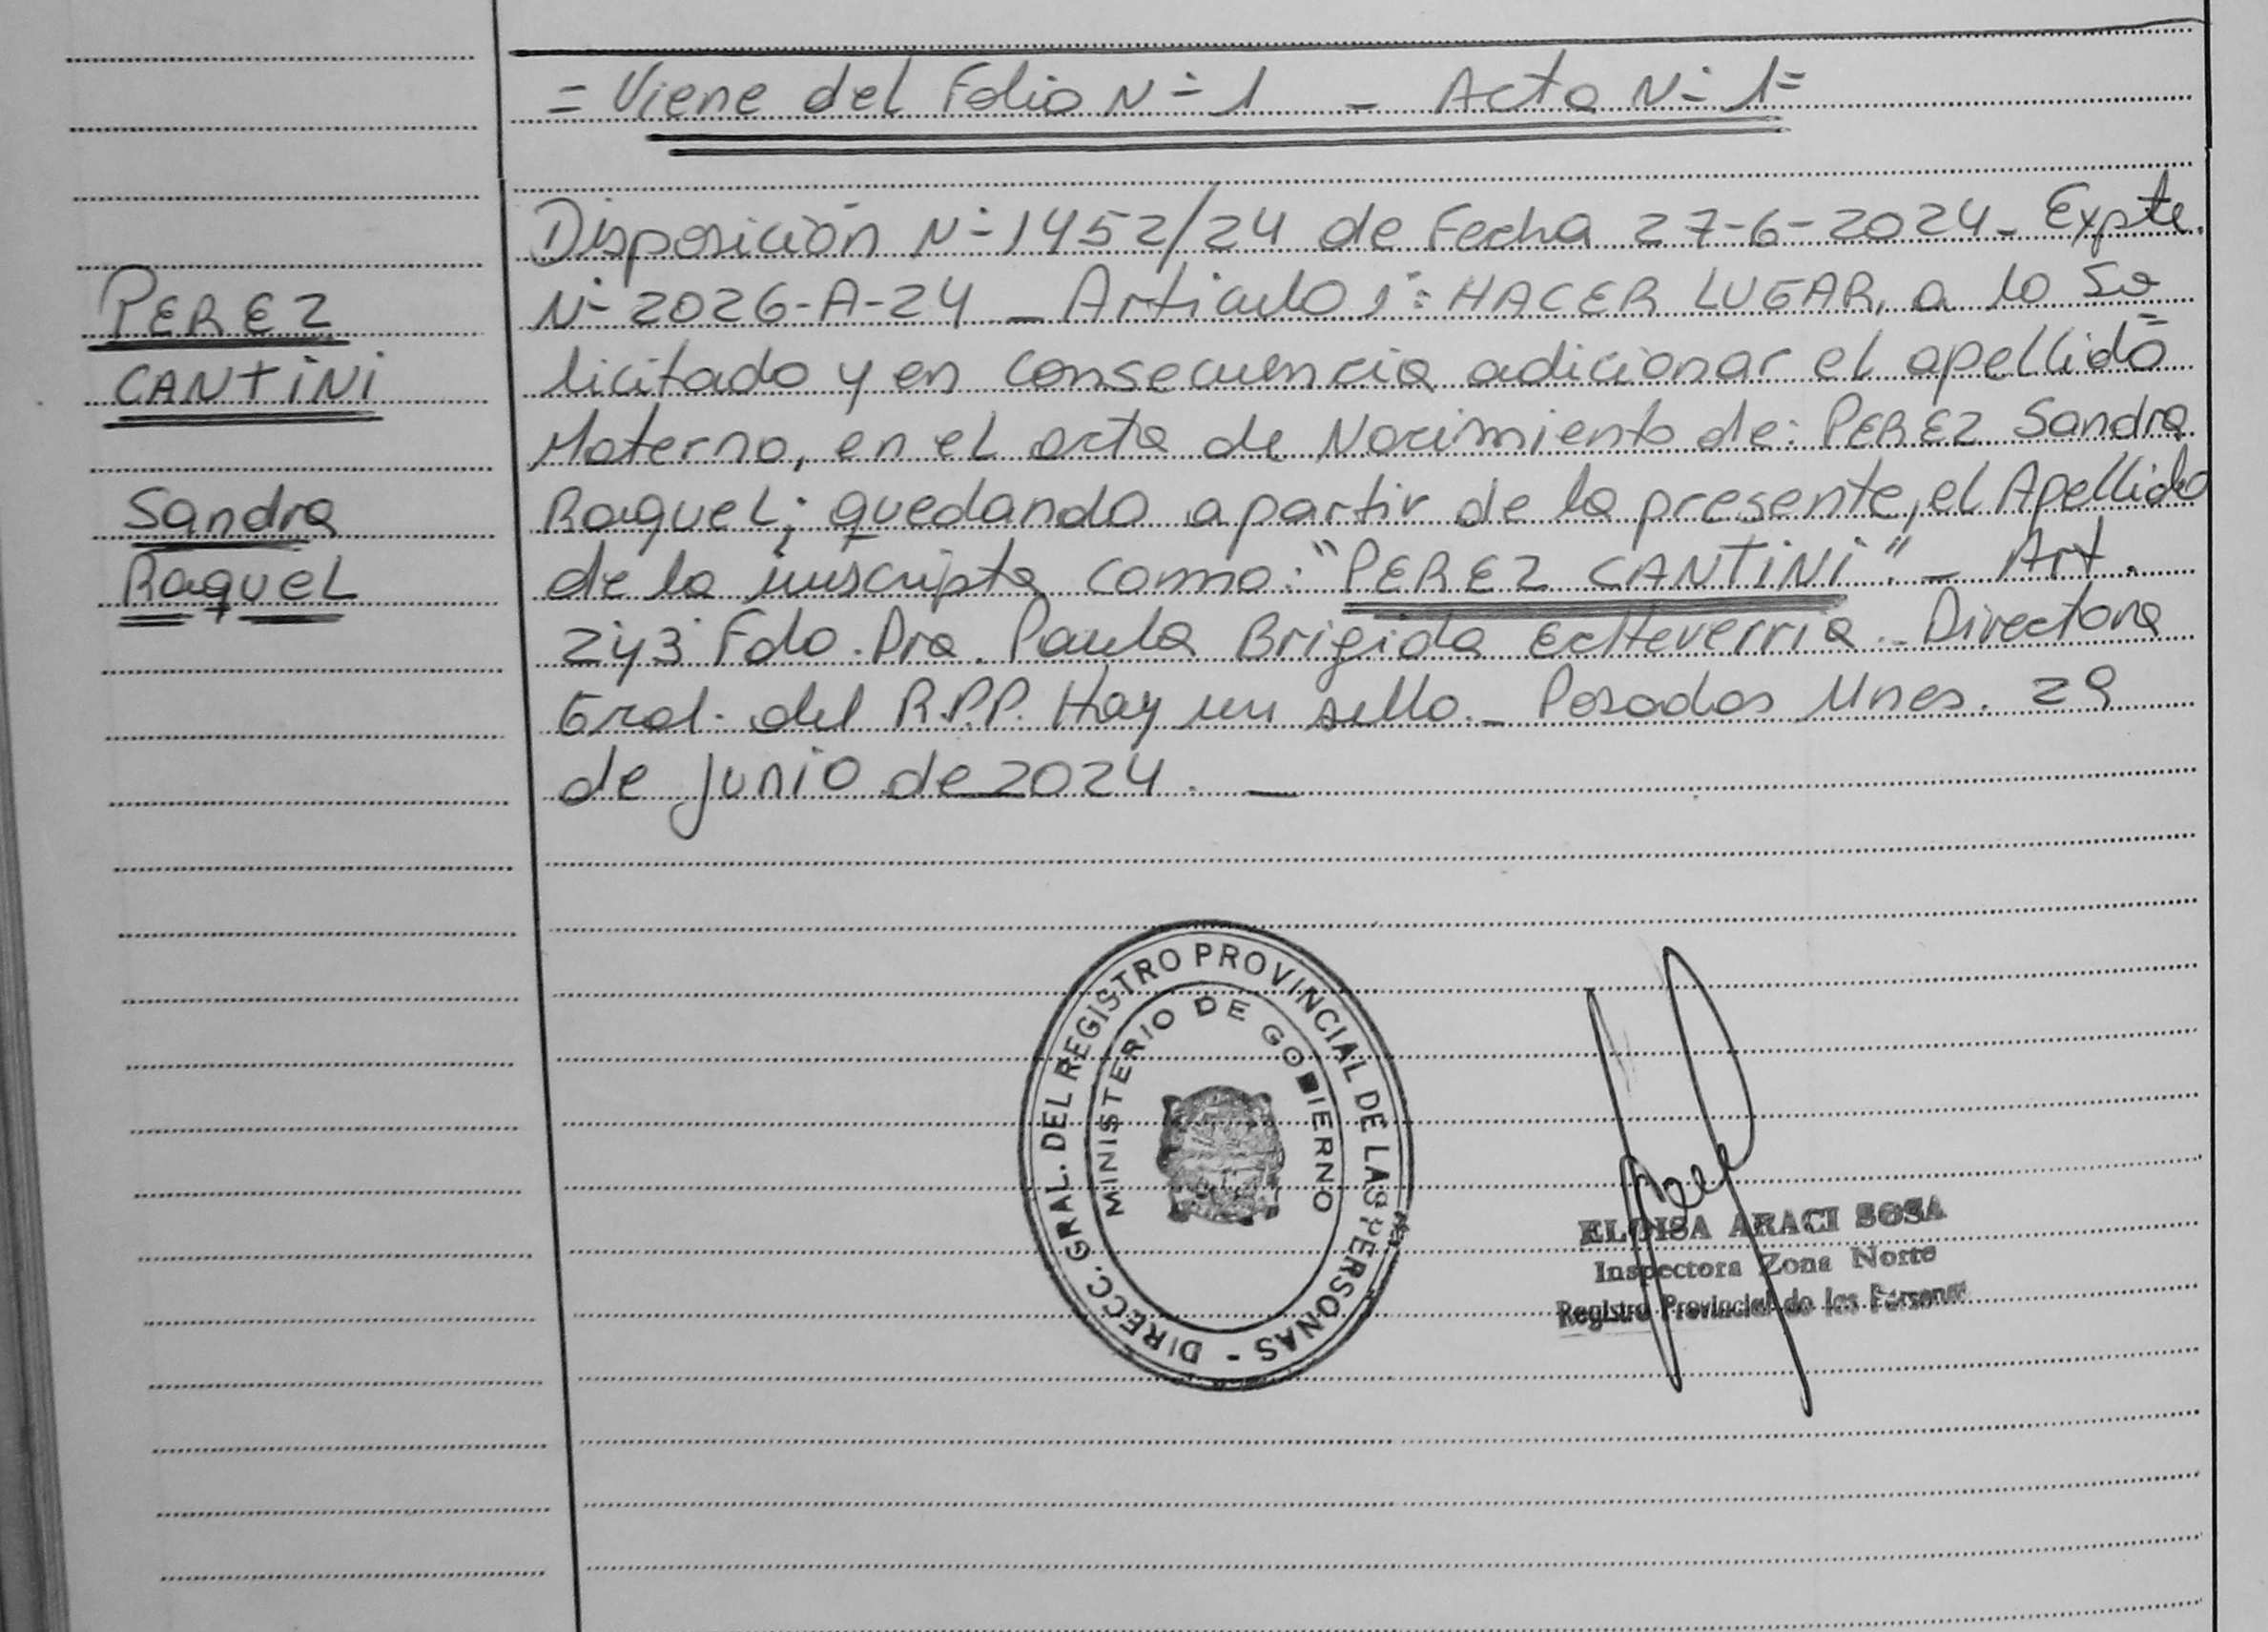 = Viene del Folio Nº 1 - Acta Nº 1=
Disposición Nº 1452/24 de Fecha 27-6-2024- Expte.
Nº 2026-A-24 - Articulo 1º: HACER LUGAR, a lo So
PEREZ
licitado y en consecuencia adicionar el apellido
CANTINI
Materno, en el acta de Nacimiento de: PEREZ Sandra
Raquel; quedando a partir de la presente, el Apellido
Sandra
de la inscripta como: "PEREZ CANTINI". - Art.
Raquel
2 y 3 Fdo. Dra. Paula Brigida Echeverria - Directora
Gral. del R.P.P. Hay un sello.- Posadas Mnes. 29
de junio de 2024. -
DIRECC. GRAL. DEL REGISTRO PROVINCIAL DE LAS PERSONAS -
MINISTERIO DE GOBIERNO
ELOISA ARACI SOSA
Inspectora Zona Norte
Registro Provincial de las Personas